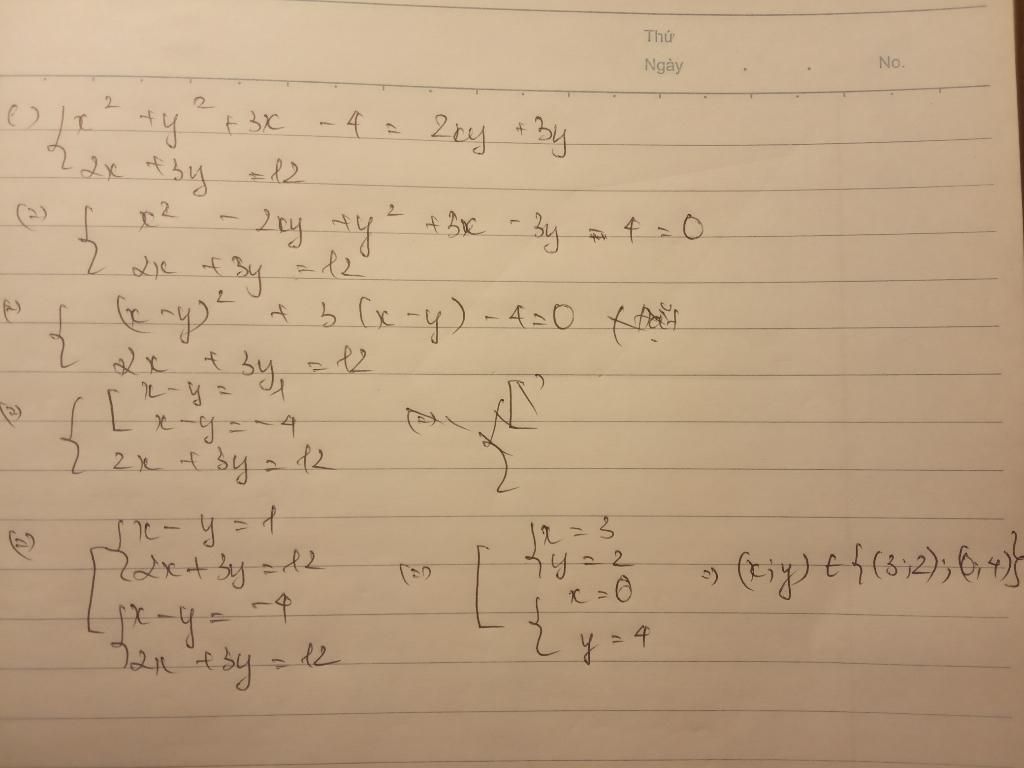 Thứ
Ngày . . No.
() { x² + y² + 3x - 4 = 2xy + 3y
2x + 3y = 12
(=) { x² - 2xy + y² + 3x - 3y - 4 = 0
2x + 3y = 12
(=) { (x - y)² + 3 (x - y) - 4 = 0
2x + 3y = 12
(=) { [ x - y = 1
x - y = -4
2x + 3y = 12
(=) [ { x - y = 1
2x + 3y = 12
{ x - y = -4
2x + 3y = 12
(=) [ { x = 3
y = 2
{ x = 0
y = 4
=) (x; y) ∈ {(3; 2); (0, 4)}